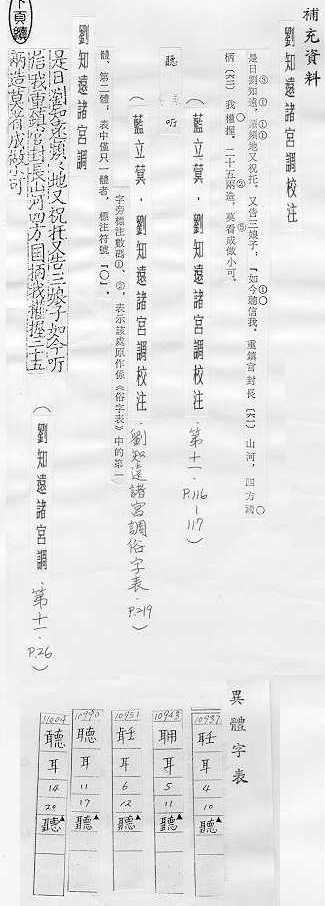 補充資料
劉知遠諸宮調校注
是日劉知遠，頭頓地又祝托，又告三娘子：「如今聽信我，重鎮官封長〔六二〕山河，四方國
柄〔六三〕我權握。二十五兩造，莫看成做小可。
（藍立蓂．劉知遠諸宮調校注．第十一．P.116-117）
聽 听
（藍立蓂．劉知遠諸宮調校注．劉知遠諸宮調俗字表．P.219）
字旁標注數碼①、②，表示該處原作係《俗字表》中的第一
體、第二體，表中僅只一體者，標注符號「〇」。
劉知遠諸宮調
是日劉知遠頭頓地又祝托又告三娘子如今听
信我重鎮官封長山河四方国柄我權握二十五
兩造莫看成做小可
（劉知遠諸宮調．第十一．P.26）
下頁續
異體字表
10937
耳
4
10
聽
10943
耳
5
11
聽
10951
耳
6
12
聽
10990
聴
耳
11
17
聽
11004
耳
14
20
聽